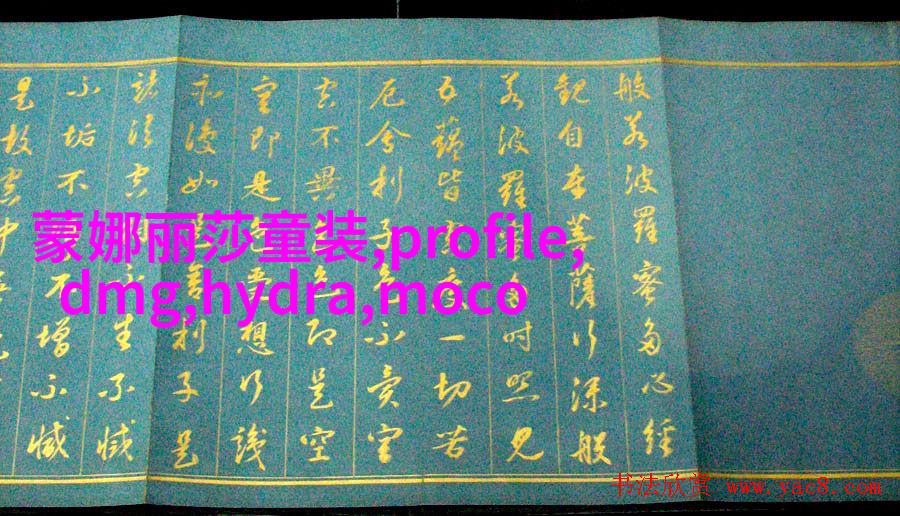 般若波羅蜜多心經
觀自在菩薩行深般
若波羅蜜多時照見
五蘊皆空度一切苦
厄舍利子色不異空
空不異色色即是空
空即是色受想行識
亦復如是舍利子是
諸法空相不生不滅
不垢不不增不減
是故空中無
蒙娜丽莎童装,profile,
dmg,hydra,moco
书法欣赏 www.yac8.com